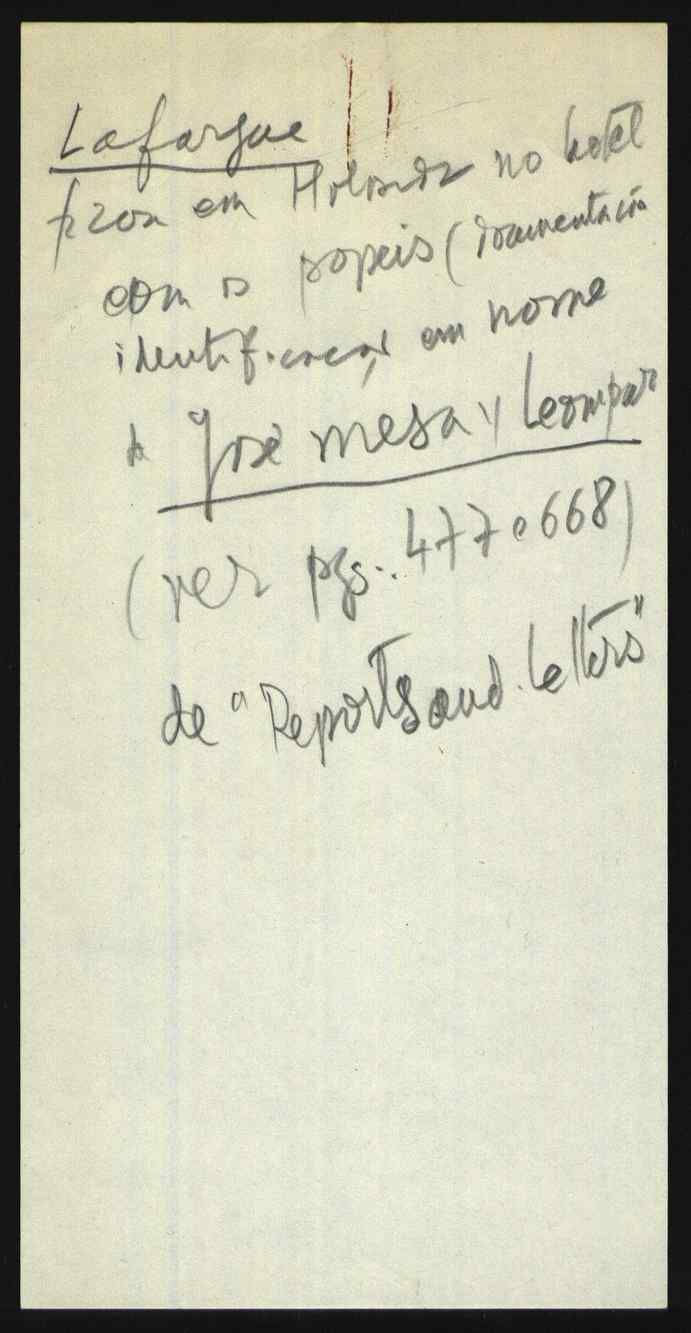 Lafargue
ficou em Holanda no hotel
com os papeis (documentación
identificação em nome
de José Mesa y Leompar
(ver pgs. 477 e 668)
de "Reports and Letters"